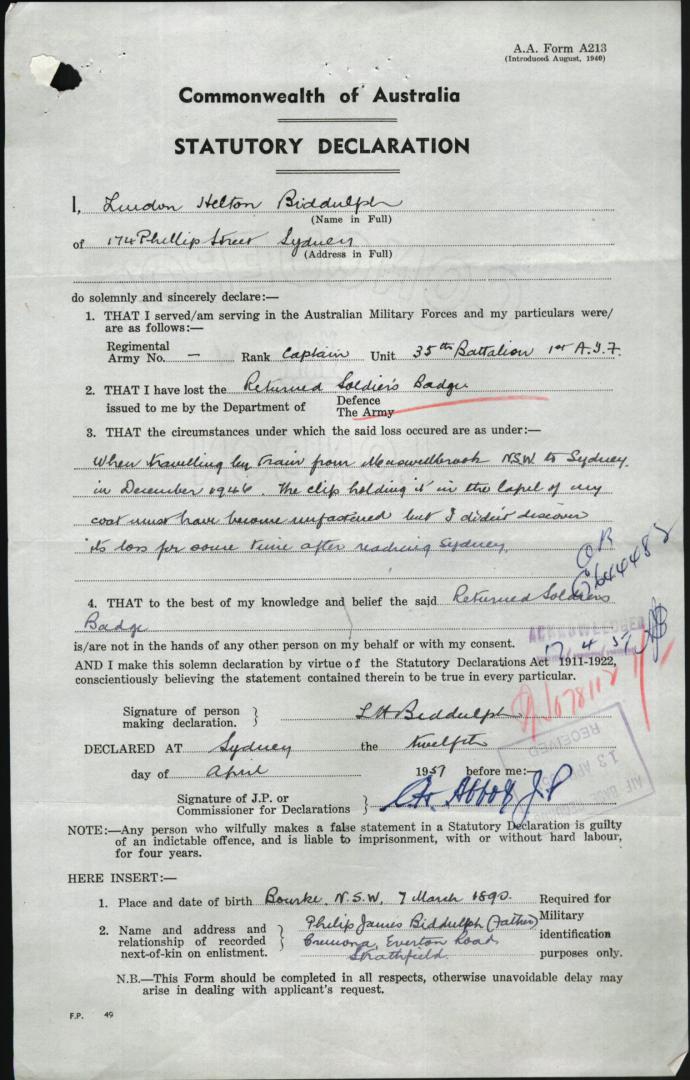 A.A. Form A213
(Introduced August, 1940)
Commonwealth of Australia
STATUTORY DECLARATION
I, Lindon Helton Biddulph
(Name in Full)
of 174 Phillip Street Sydney
(Address in Full)
do solemnly and sincerely declare:—
1. THAT I served/am serving in the Australian Military Forces and my particulars were/
are as follows:—
Regimental
Army No. — Rank Captain Unit 35th Battalion 1st A.I.F.
2. THAT I have lost the Returned Soldiers Badge
issued to me by the Department of Defence
The Army
3. THAT the circumstances under which the said loss occured are as under:—
When travelling by train from Muswellbrook NSW to Sydney
in December 1946. The clip holding it in the lapel of my
coat must have become unfastened but I didn't discover
its loss for some time after reaching Sydney.
OR
644482
4. THAT to the best of my knowledge and belief the said Returned Soldiers
Badge
ACKNOWLEDGED
17/4/57
is/are not in the hands of any other person on my behalf or with my consent.
AND I make this solemn declaration by virtue of the Statutory Declarations Act 1911-1922,
conscientiously believing the statement contained therein to be true in every particular.
Signature of person
making declaration. } L H Biddulph
DECLARED AT Sydney the twelfth
RECEIVED
day of April 1957 before me:—
Signature of J.P. or
Commissioner for Declarations } Abbott J.P
NOTE:—Any person who wilfully makes a false statement in a Statutory Declaration is guilty
of an indictable offence, and is liable to imprisonment, with or without hard labour,
for four years.
HERE INSERT:—
1. Place and date of birth Bourke, N.S.W. 7 March 1890.
2. Name and address and
relationship of recorded
next-of-kin on enlistment. } Philip James Biddulph (Father)
Cremona, Everton Road
Strathfield.
Required for
Military
identification
purposes only.
N.B.—This Form should be completed in all respects, otherwise unavoidable delay may
arise in dealing with applicant's request.
F.P. 49